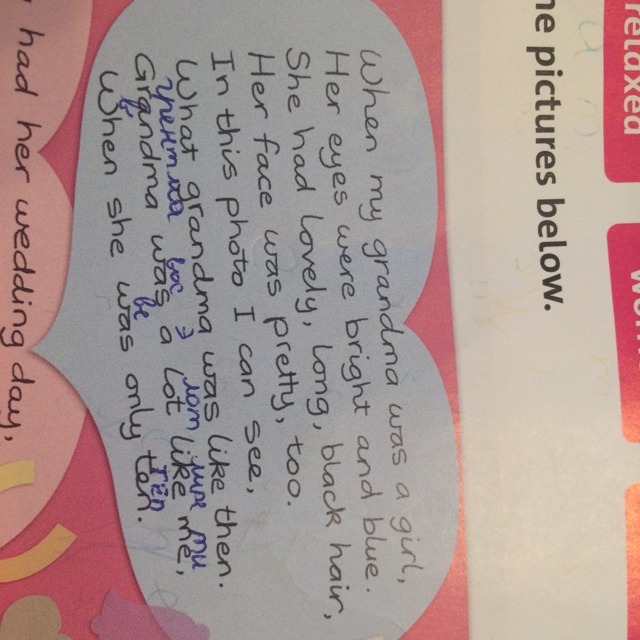 relaxed
ne pictures below.
When my grandma was a girl,
Her eyes were bright and blue.
She had lovely, long, black hair,
Her face was pretty, too.
In this photo I can see,
What grandma was like then.
Grandma was a lot like me,
When she was only ten.
had her wedding day,